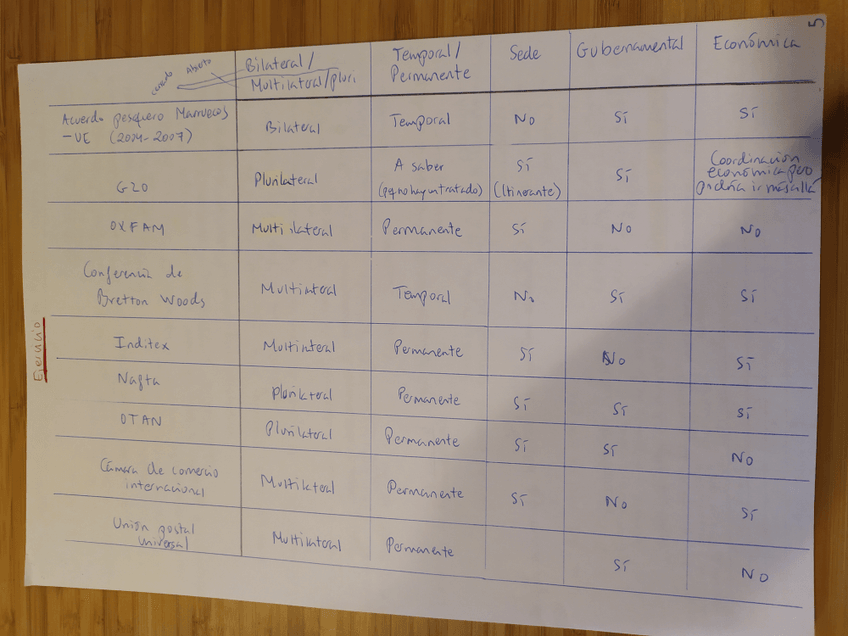 5
cerrado abierto
Bilateral/ Temporal/ Sede Gubernamental Económica
Multilateral/pluri. Permanente
Acuerdo pesquero Marruecos Bilateral Temporal No Sí Sí
-UE (2004-2007)
G20 Plurilateral A saber Sí Sí Coordinación
(pq no hay un tratado) (Itinerante) económica pero
podría ir más allá
OXFAM Multilateral Permanente Sí No No
Conferencia de Multilateral Temporal No Sí Sí
Bretton Woods
Ejercicio
Inditex Multilateral Permanente Sí No Sí
Nafta Plurilateral Permanente Sí Sí Sí
OTAN Plurilateral Permanente Sí Sí No
Cámara de comercio Multilateral Permanente Sí No Sí
internacional
Unión postal Multilateral Permanente Sí No
universal